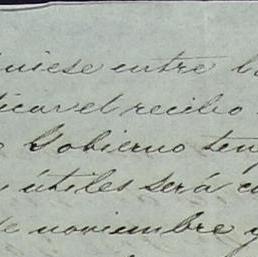 uiese entre l
ticar el recibo
Gobierno ten
útiles será c
de noviembre y